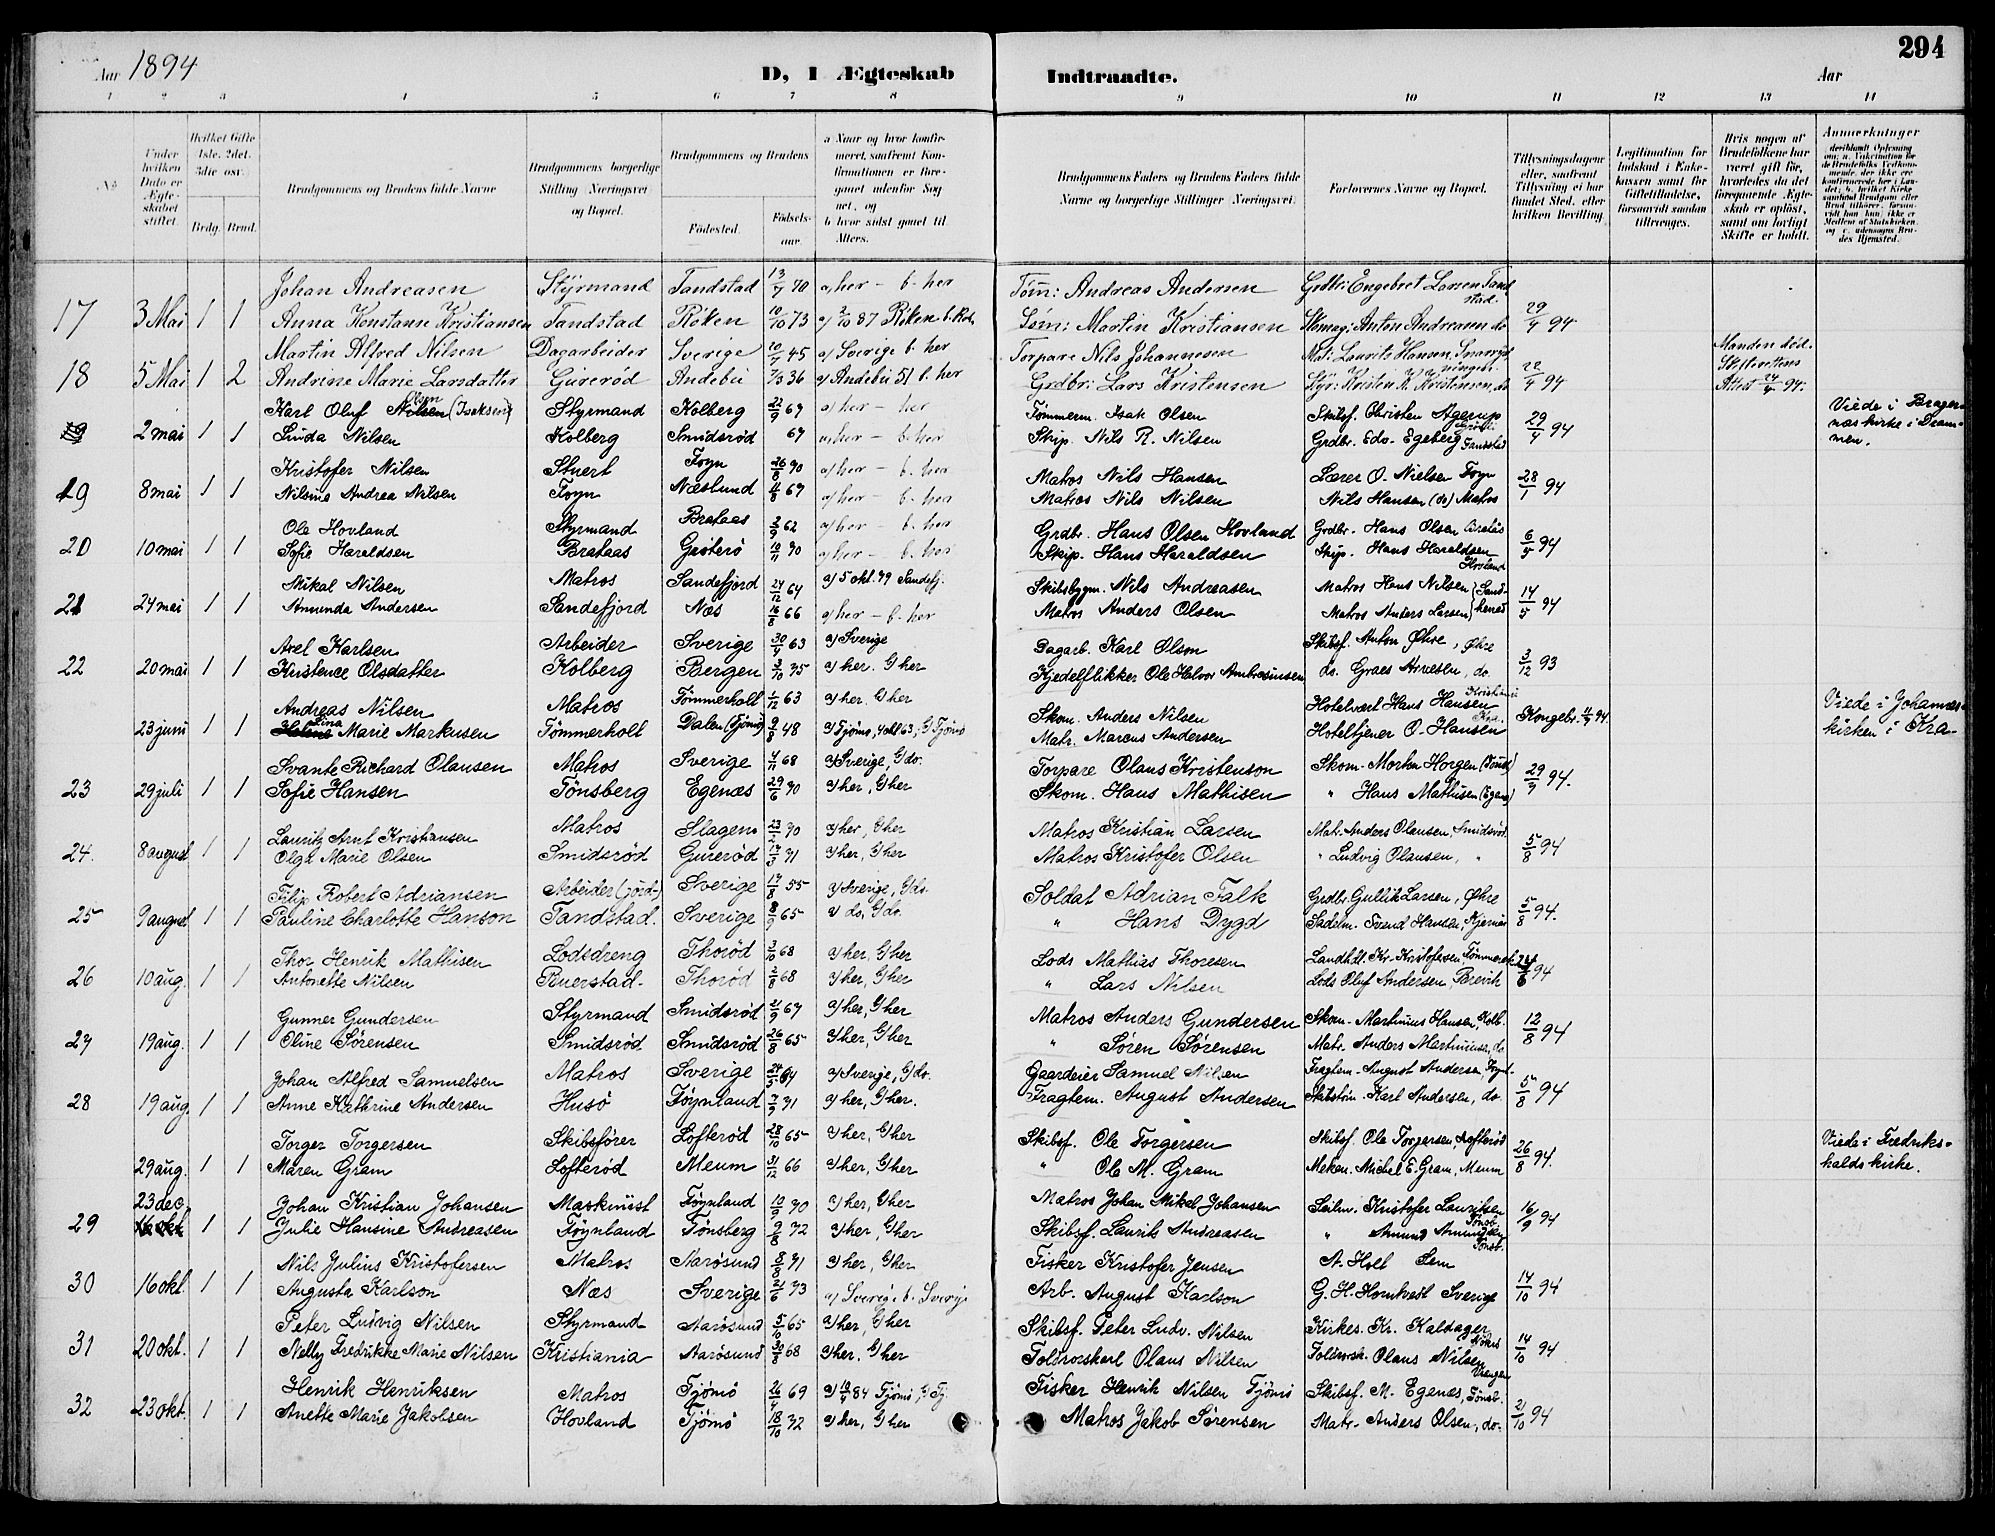 294
Aar 1894
D, I Ægteskab Indtraadte. Aar
1 2 3 4 5 6 7 8 9 10 11 12 13 14
No
Under hvilken Dato er Ægteskabet stiftet.
Hvilket Gifte 1ste, 2det, 3die osv.
Brdg. Brud.
Brudgommens og Brudens fulde Navne
Brudgommens borgerlige Stilling Næringsvei og Bopæl.
Brudgommens og Brudens
Fødested. Fødselsaar
a Naar og hvor konfirmeret, saafremt Konfirmationen er foregaaet udenfor Sognet, og
b hvor sidst gaaet til Alters.
Brudgommens Faders og Brudens Faders fulde Navne og borgerlige Stillinger Næringsvei.
Forlovernes Navne og Bopæl.
Tillysningsdagene eller, saafremt Tillysning ei har fundet Sted, efter hvilken Bevilling.
Legitimation for Indskud i Enkekassen samt for Giftetilladelse, forsaavidt saadan tiltrænges.
Hvis nogen af Brudefolkene har været gift før, hvorledes da det foregaaende Ægteskab er opløst, samt om lovligt Skifte er holdt.
Anmærkninger
Johan Andreasen Styrmand Tandstad 13/7 70 a) her - b. her Tøm: Andreas Andersen Grdbr: Engebret Larsen Tandstad.
17 3 Mai 1 1 Anna Konstanse Kristiansen Tandstad Røken 10/10 73 a) 2/10 87 Røken b. Røk. Tøm: Martin Kristiansen Skomag: Anton Andreasen do 29/4 94
Martin Alfred Nilsen Dagarbeider Sverige 10/7 45 a) Sverige b. her Torpare Nils Johannesen Mat: Lauritz Hansen, Manden død.
18 5 Mai 1 2 Andrine Marie Larsdatter Gurerød Andebu 7/3 36 a) Andebu 51 b. her Grdbr: Lars Kristensen Styr: Kristen K. Kristensen, do 22/4 94 Skifterettens Attest 24/4 94.
Karl Oluf Nilsen (Isaksen) Styrmand Kolberg 22/9 67 a) her - her Tømmerm. Isak Olsen Skibsf. Christen Agerup Viede i Bragernæs kirke i Drammen.
19 2 mai 1 1 Linda Nilsen Kolberg Smidsrød 67 a) her - b. her Skip. Nils R. Nilsen Grdbr. Edv. Egeberg Tandstad 29/4 94
Kristofer Nilsen Stuert Føyn 26/8 70 a) her - b. her Matros Nils Hansen Lærer O. Nielsen Føyn
19 8 mai 1 1 Nilsine Andrea Nilsen Føyn Næslund 4/8 67 a) her - b. her Matros Nils Nilsen Nils Hansen (do) Matros 28/1 94
Ole Hovland Styrmand Brataas 2/9 62 a) her - b. her Grdbr. Hans Olsen Hovland Grdbr. Hans Olsen Brataas
20 10 mai 1 1 Sofie Haraldsen Brataas Grøterø 10/11 70 a) her - b. her Skip. Hans Haraldsen Skip. Hans Haraldsen Hovland 6/5 94
Mikal Nilsen Matros Sandefjord 24/12 64 a) 5 okt. 79 Sandefj. Skibsbygm. Nils Andreasen Matros Hans Nilsen
21 24 mai 1 1 Amunda Andersen Sandefjord Næs 16/8 66 a) her - b. her Matros Anders Olsen Matros Anders Larsen 14/5 94
Axel Karlsen Arbeider Sverige 30/7 63 a) Sverige Dagarb. Karl Olson Skibsf. Anton Øhre, Øhre
22 20 mai 1 1 Kristence Olsdatter Kolberg Bergen 3/10 75 a) her. b) her Kjedelflikker Ole Halvor Ambrosiussen do. Graes Arvesen, do. 3/12 93
Andreas Nilsen Matros Tømmerholt 1/12 63 a) her. b) her Skom. Anders Nilsen Hotelvært Hans Hansen Kristiania Viede i Johanneskirken i Kra.
23 juni 1 1 Helene Lina Marie Markusen Tømmerholt Dalen (Tjömö) 9/8 48 a) Tjømø, 4 okt 63, b) Tjømø Matr. Marcus Andersen Hoteltjener O. Hansen Kra. Kongebr. 11/5 94
Svante Richard Olausen Matros Sverige 4/11 68 a) Sverige, b) do. Torpare Olaus Kristenson Skom. Morten Horgen (Tønsb)
23 29 juli 1 1 Sofie Hansen Tönsberg Egenæs 29/6 70 a) her, b) her Skom. Hans Mathisen " Hans Mathisen (Egenæs) 29/7 94.
Lauritz Arnt Kristiansen Matros Slagen 23/5 70 a) her, b) her Matros Kristian Larsen Mat. Anders Olausen, Smidsrød
24. 8 august 1 1 Olga Marie Olsen Smidsrød Gurerød 17/3 71 a) her, b) her Matros Kristofer Olsen " Ludvig Olausen, " 5/8 94
Filip Robert Adriansen Arbeider (jord-) Sverige 17/8 55 a) Sverige, b) do. Soldat Adrian Falk Grdbr. Gullik Larsen, Øhre
25 9 august 1 1 Pauline Charlotte Hanson Tandstad. Sverige 8/9 65 a) do, b) do. " Hans Dygd Sadelm. Svend Hansen, Kjernaas 5/8 94.
Thor Henrik Mathisen Lodsdreng Thorød 3/10 68 a) her, b) her Lods Mathias Thoresen Landhdl. Kr. Kristofersen, Tømmerholt
26 10 aug. 1 1 Antonette Nilsen Buerstad. Thorød 2/8 68 a) her, b) her " Lars Nilsen Lods Oluf Andersen, Brevik 24/6 94
Gunner Gundersen Styrmand Smidsrød 21/9 67 a) her, b) her Matros Anders Gundersen Skom. Martinius Hansen, Kolb.
27 19 aug. 1 1 Oline Sørensen Smidsrød Smidsrød 26/8 65 a) her, b) her " Søren Sørensen Matr. Anders Martinusen, do 12/8 94
Johan Alfred Samuelsen Matros Sverige 24/5 64 a) Sverige, b) do. Gaardeier Samuel Nilsen Fragtem. August Andersen, Føynl.
28 19 aug. 1 1 Anne Kathrine Andersen Husö Föynland 7/7 71 a) her, b) her. Fragtem. August Andersen Skibstøm. Karl Andersen, do. 5/8 94
Torger Torgersen Skibsfører Lofterød 28/10 65 a) her, b) her Skibsf. Ole Torgersen Skibsf. Ole Torgersen, Lofterød Viede i Fredrikshalds kirke.
29 aug. 1 1 Maren Gram Lofterød Meum 31/12 66 a) her, b) her " Ole M. Gram Meken. Mickel E. Gram, Meum 26/8 94.
23 dec. Johan Kristian Johansen Maskinist Föynland 10/9 70 a) her, b) her Matros Johan Mikel Johansen Seilm. Kristofer Lauritsen Tønsb.
29 1 1 Julie Hansine Andreasen Føynland Tønsberg 9/8 72 a) her, b) her Skibsf. Laurits Andreasen " Amund Amundsen Tønsb. 16/9 94
Nils Julius Kristofersen Matros Aarøsund 8/8 71 a) her, b) her Fisker Kristofer Jensen A. Holt Sem
30 16 okt. 1 1 Augusta Karlson Næs Sverige 21/6 73 a) Sverige b. Sverige Arb. August Karlson G. H. Hornkvist Sverige 14/10 94
Peter Ludvig Nilsen Styrmand Aarøsund 5/10 65 a) her, b) her Skibsf. Peter Ludv. Nilsen Kirkes. Kr. Kaldager,
31 20 okt. 1 1 Nelly Fredrikke Marie Nilsen Kristiania Aarøsund 30/3 68 a) her. b) her Toldroerskarl Olaus Nilsen Toldroersk. Olaus Nilsen Vrengen 14/10 94
Henrik Henriksen Matros Tjømø 26/4 69 a) 12/9 84 Tjømö, b) Tj Fisker Henrik Nilsen Tjømö Skibsf. M. Egenæs, Tønsb.
32 23 okt. 1 1 Anette Marie Jakobsen Hovland Tjømø 18/10 72 a) her, b) her Matros Jakob Sørensen Matr. Anders Olsen, do. 21/10 94